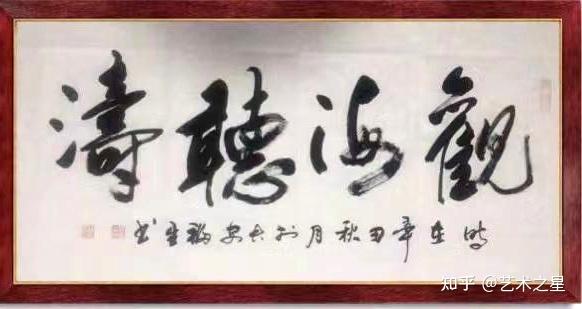 觀海聽濤
時在辛丑秋月於長安福生书
知乎 @艺术之星